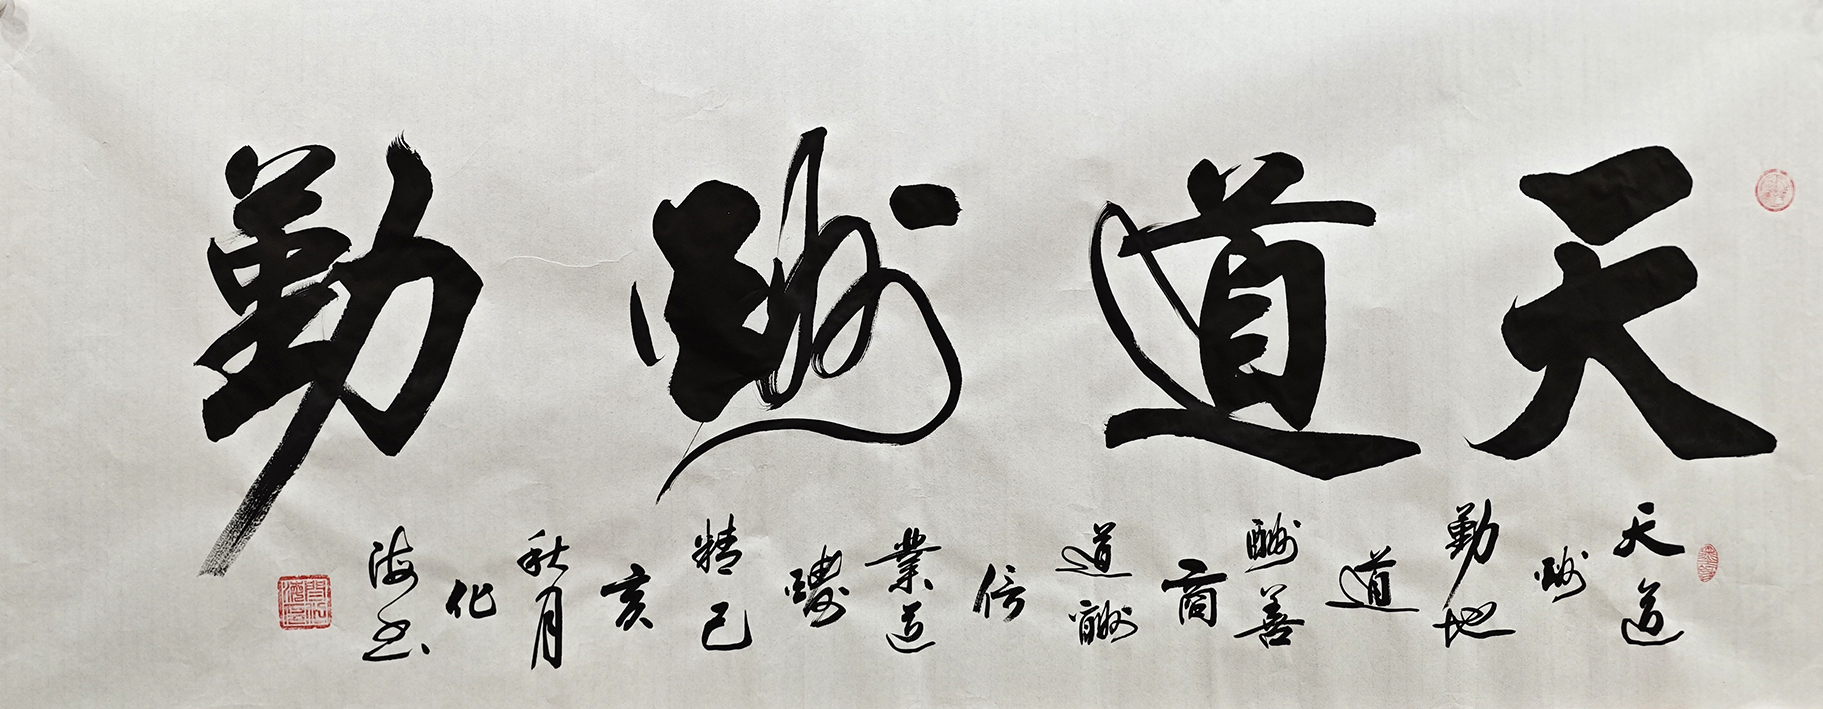 天道酬勤
天道
酬
勤地
道
酬善
商
道酬
信
業道
酬
精己
亥
秋月
化
海书